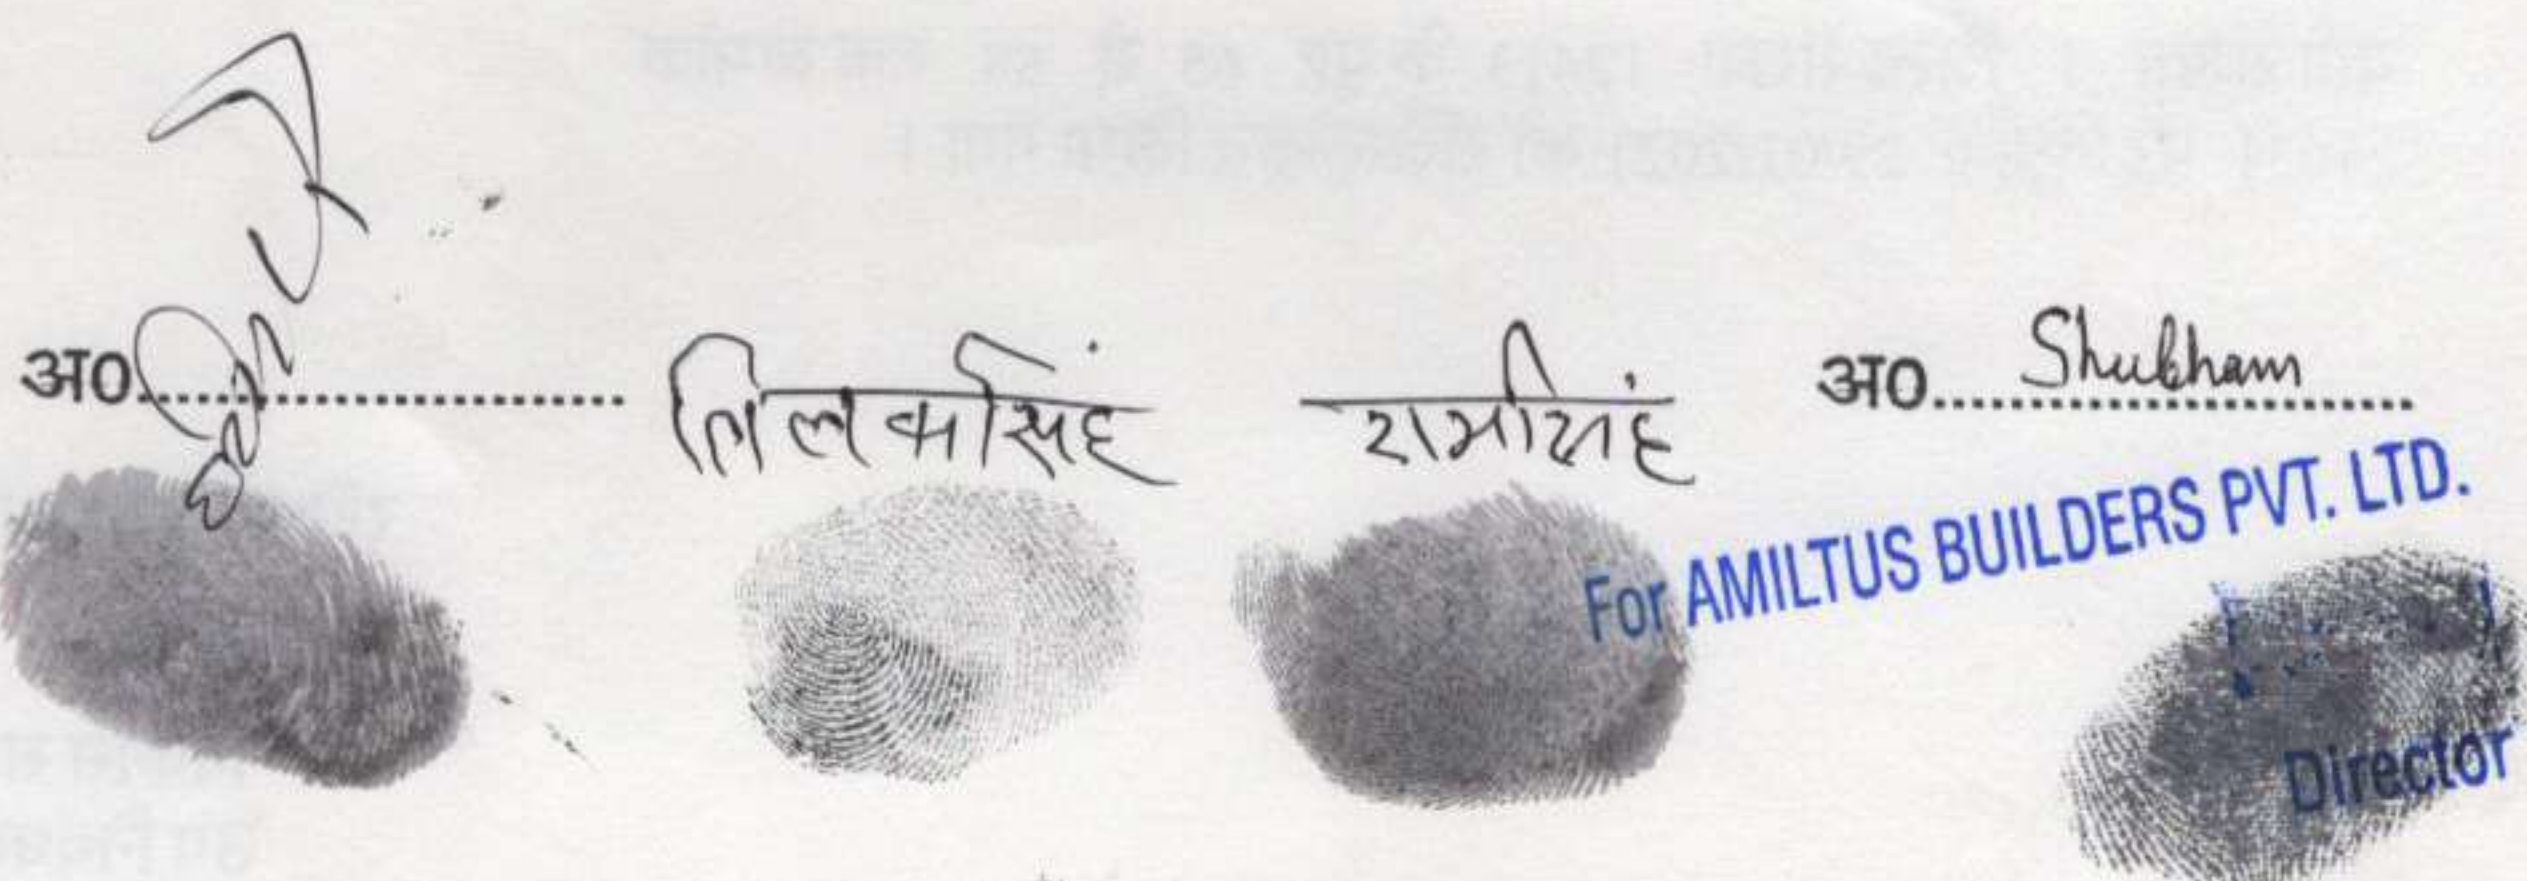 अ०.............................. तिलकसिंह रामसिंह अ०.............................. Shubham
For AMILTUS BUILDERS PVT. LTD.
Director